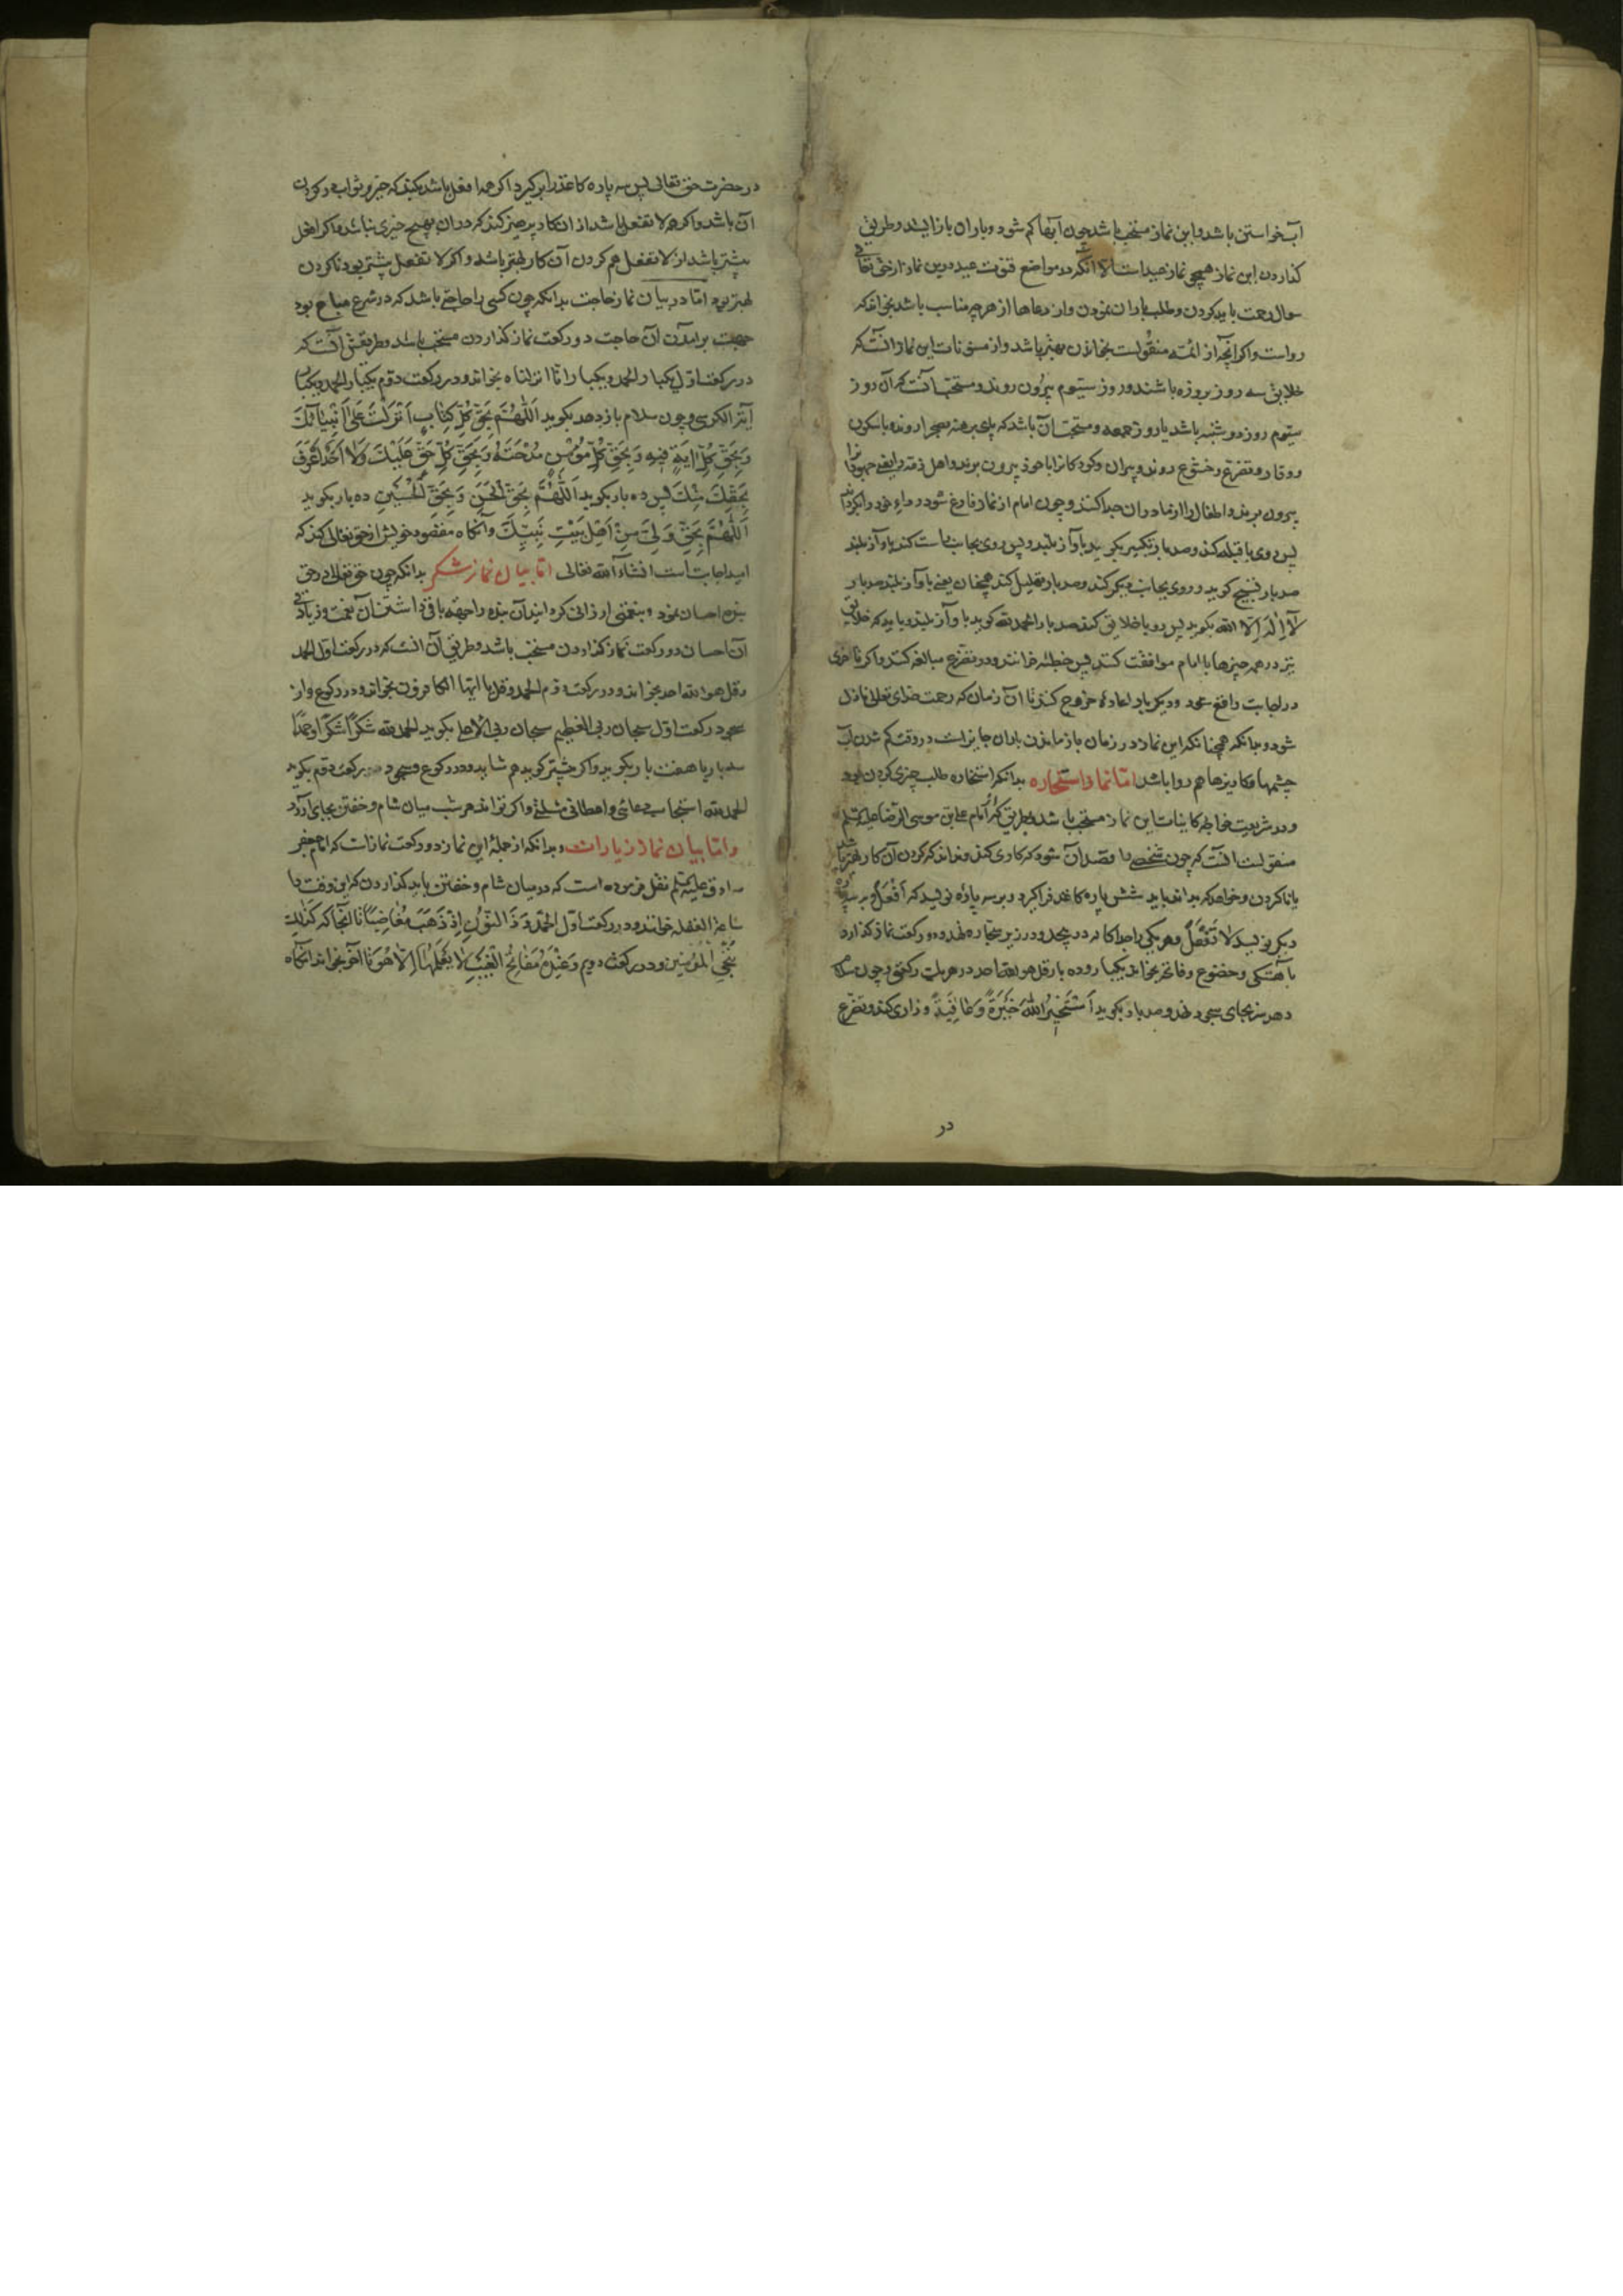 آب خواستن باشد و این نماز مستحب باشد چون آبها کم شود و باران باز ایستد و طریق
کذاردن این نماز همچو نماز عیداست الا آنکه در مواضع قنوت عید درین نماز از حق تعالی
سوال رحمت باید کردن و طلب باران نمودن و از دعاها از هرچه مناسب باشد بخواند که
رواست و اکر آنچه از ائمه منقولست بخوانند بهتر باشد و از مسنونات این نماز آنست که
خلایق سه روز بروزه باشند و روز سیّوم بیرون روند و مستحب آنست که آن روز
سیّوم روز دوشنبه باشد یا روز جمعه و مستحب آن باشد که پای برهنه بصحرا روند و با سکون
و وقار و تضرع و خشوع روند و پیران و کودکانرا با خود بیرون برند و اهل ذمه را یعنی جهودانرا
بیرون نبرند و اطفال را از مادران جدا کنند و چون امام از نماز فارغ شود رداء خود را بکرداند
پس روی با قبله کند و صد بار تکبیر بکوید بآواز بلند و پس روی بجانب راست کند بآواز بلند
صد بار تسبیح کوید و روی بجانب چپ کند و صد بار تهلیل کند همچنان یعنی بآواز بلند صد بار
لا اله الا الله بکوید پس رو با خلایق کند صد بار الحمدلله کوید بآواز بلند و باید که خلایق
نیز در همه چیزها با امام موافقت کنند پس خطبه خوانند و در تضرع مبالغه کنند و اکر تاخیری
در اجابت واقع شود و دیکر بار اعادهٔ خروج کنند تا آن زمان که رحمت خدای تعالی نازل
شود و بدانکه همچنانکه این نماز در زمان باز ماندن باران جایزاست در وقت کم شدن آب
چشمها و کاریزها هم روا باشد اما نماز استخاره بدانکه استخاره طلب چیزی کردن بود
و در شریعت این نماز مستحب باشد و طریق که از امام علی بن موسی الرضا علیه السلم
منقولست آنست که چون شخصی را قصد آن شود که کاری کند و نداند که کردن آن کار بهتر باشد
یا ناکردن و خواهد که بداند باید شش پاره کاغذ فراکیرد و بر سه پاره نویسد که اَفْعَلْ و بر سه پاره
دیکر نویسد لا تَفْعَلْ و هر یکی را جدا کانه در پیچد و در زیر سجّاده نهد و دو رکعت نماز کذارد
با آهستکی و خضوع و فاتحه بخواند یکبار و ده بار قل هو الله احد در هر یک رکعتی و چون سلام
دهد سر بجای سجود نهد و صد بار بکوید اَستَخیرُ اللهَ خِیَرَةً وَ عافِیَةً و زاری کند و تضرع
در
در حضرت حق تعالی پس سه پاره کاغذ را برکیرد اکر همه افعل باشد بکند که خیر و ثواب در کردن
آن باشد و اکر همه لا تفعل باشد از ان کار پرهیز کند که در ان هیچ خیری نباشد و اکر افعل
بیشتر باشد از لا تفعل هم کردن آن کار بهتر باشد و اکر لا تفعل بیشتر بود ناکردن
بهتر بود اما در بیان نماز حاجت بدانکه چون کسی را حاجتی باشد که در شرع مباح بود
جهت برآمدن آن حاجت دو رکعت نماز کذاردن مستحب باشد و طریقش آنست که
در رکعت اول یکبار الحمد و یکبار انا انزلناه بخواند و در رکعت دوم یکبار الحمد و یکبار
آیة الکرسی و چون سلام باز دهد بکوید اَللّٰهُمَّ بِحَقِّ کُلِّ کِتابٍ اَنْزَلْتَ عَلیٰ اَنْبِیائِکَ
وَ بِحَقِّ کُلِّ آیَةٍ فیهِ وَ بِحَقِّ کُلِّ مُؤْمِنٍ مَدَحْتَهُ وَ بِحَقِّ کُلِّ حَقٍّ عَلَیْکَ وَلا اَحَدَ اَعْرَفَ
بِحَقِّکَ مِنْکَ پس ده بار بکوید اَللّٰهُمَّ بِحَقِّ الْحَسَنِ وَ بِحَقِّ الْحُسَیْنِ ده بار بکوید
اَللّٰهُمَّ بِحَقِّ وَلِیِّ مِنْ اَهْلِ بَیْتِ نَبِیِّکَ و آنکاه مقصود خویش از حق تعالی کند که
امید اجابت است انشاء الله تعالی اما بیان نماز شکر بدانکه چون حق تعالی در حق
بنده احسان نمود و نعمتی ارزانی کرد آن بنده را جهة باقی داشتن آن نعمت و زیادتی
آن احسان دو رکعت نماز کذاردن مستحب باشد و طریق آن آنست که در رکعت اول الحمد
و قل هو الله احد بخواند و در رکعت دوم الحمد و قل یا ایها الکافرون بخواند و در رکوع و از
سجود رکعت اول سبحان ربی العظیم سبحان ربی الاعلی بکوید الحمد لله شکرًا شکرًا و حمدًا
سه بار یا هفت بار بکوید و اکر بیشتر کوید هم شاید و در رکوع و سجود رکعت دوم بکوید
الحمد لله استجاب دعائی و اعطانی مسئلتی و اکر تواند هر شب میان شام و خفتن بجای آرد
و اما بیان نماز زیارات و بدانکه از جملهٔ این نماز دو رکعت نمازاست که امام جعفر
صادق علیه السلم نقل فرموده است که در میان شام و خفتن باید کذاردن که این وقت را
ساعة الغفله خوانند و در رکعت اول الحمد و ذَا النّونِ اِذْ ذَهَبَ مُغاضِبًا تا آنجا که کَذٰلِکَ
نُنْجِی الْمُؤمِنین و در رکعت دویم وَعِنْدَهُ مَفاتِحُ الْغَیْبِ لا یَعْلَمُها اِلّا هُوَ تا آخر بخواند آنکاه